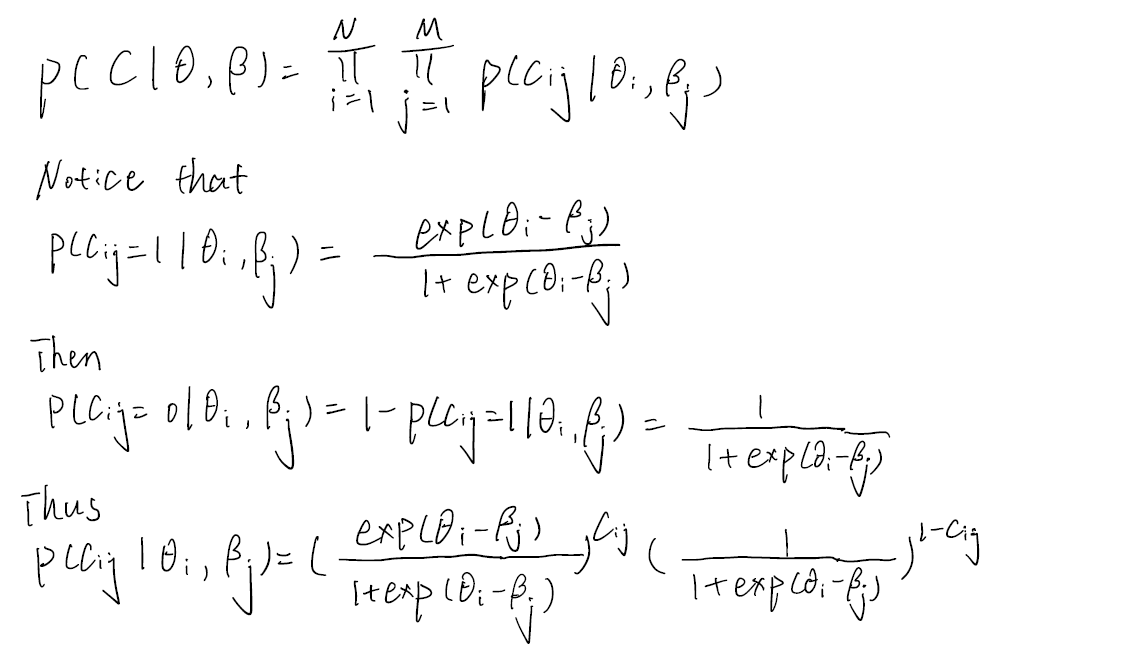 p(C|θ,β) = ∏_{i=1}^{N} ∏_{j=1}^{M} p(c_{ij}|θ_i,β_j)
Notice that
p(c_{ij}=1|θ_i,β_j) = \frac{exp(θ_i-β_j)}{1+exp(θ_i-β_j)}
Then
p(c_{ij}=0|θ_i,β_j) = 1-p(c_{ij}=1|θ_i,β_j) = \frac{1}{1+exp(θ_i-β_j)}
Thus
p(c_{ij}|θ_i,β_j) = (\frac{exp(θ_i-β_j)}{1+exp(θ_i-β_j)})^{c_{ij}} (\frac{1}{1+exp(θ_i-β_j)})^{1-c_{ij}}